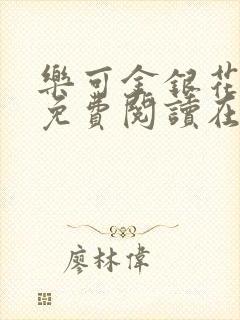 樂可金銀花
免費閱讀在
廖林偉